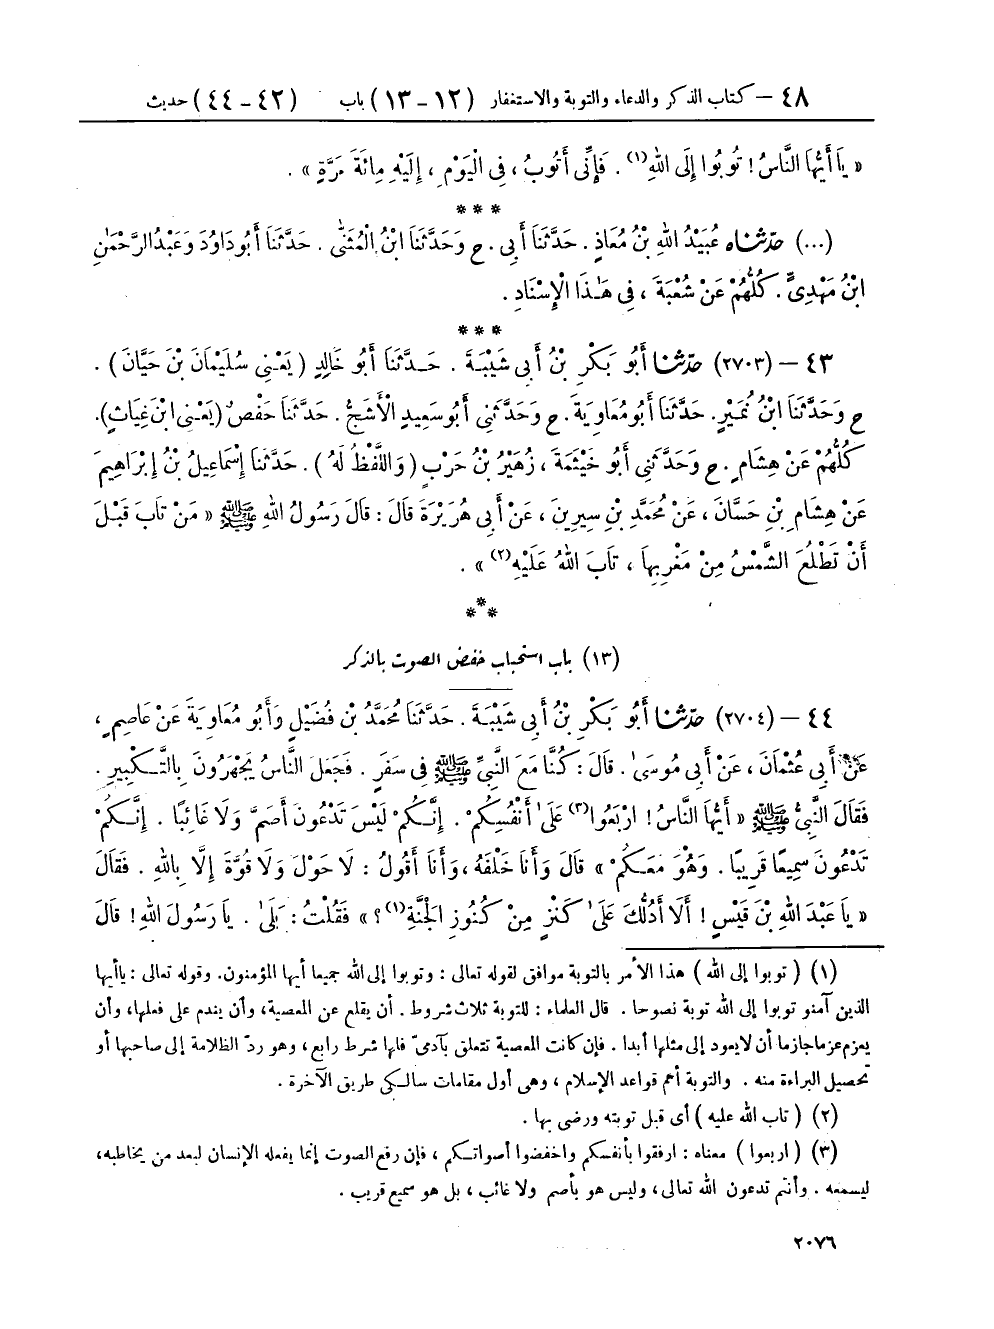 ٤٨ – كتاب الذكر والدعاء والتوبة والاستغفار (١٢ - ١٣) باب (٤٢ - ٤٤) حديث
« يَا أَيُّهَا النَّاسُ ! تُوبُوا إِلَى اللهِ(١) . فَإِنِّى أَتُوبُ ، فِى الْيَوْمِ ، إِلَيْهِ مِائَةَ مَرَّةٍ » .
* * *
(...) حَدَّثَنَاه عُبَيْدُ اللهِ بْنُ مُعَاذٍ . حَدَّثَنَا أَبِى . ح وَحَدَّثَنَا ابْنُ الْمُثَنَّى . حَدَّثَنَا أَبُو دَاوُدَ وَعَبْدُ الرَّحْمَنِ
ابْنُ مَهْدِىٍّ . كُلُّهُمْ عَنْ شُعْبَةَ ، فِى هَـٰذَا الْإِسْنَادِ .
* * *
٤٣ – (٢٧٠٣) حَدَّثَنَا أَبُو بَكْرِ بْنُ أَبِى شَيْبَةَ . حَدَّثَنَا أَبُو خَالِدٍ ( يَعْنِى سُلَيْمَانَ بْنَ حَيَّانَ ) .
ح وَحَدَّثَنَا ابْنُ نُمَيْرٍ. حَدَّثَنَا أَبُو مُعَاوِيَةَ . ح وَحَدَّثَنِى أَبُو سَعِيدٍ الْأَشَجُّ . حَدَّثَنَا حَفْصٌ (يَعْنِى ابْنَ غِيَاثٍ).
كُلُّهُمْ عَنْ هِشَامٍ . ح وَحَدَّثَنِى أَبُو خَيْثَمَةَ ، زُهَيْرُ بْنُ حَرْبٍ ( وَاللَّفْظُ لَهُ ) . حَدَّثَنَا إِسْمَاعِيلُ بْنُ إِبْرَاهِيمَ
عَنْ هِشَامِ بْنِ حَسَّانَ ، عَنْ مُحَمَّدِ بْنِ سِيرِينَ ، عَنْ أَبِى هُرَيْرَةَ قَالَ : قَالَ رَسُولُ اللهِ ﷺ « مَنْ تَابَ قَبْلَ
أَنْ تَطْلُعَ الشَّمْسُ مِنْ مَغْرِبِهَا ، تَابَ اللهُ عَلَيْهِ(٢) » .
* * *
(١٣) باب استحباب خفض الصوت بالذكر
٤٤ – (٢٧٠٤) حَدَّثَنَا أَبُو بَكْرِ بْنُ أَبِى شَيْبَةَ . حَدَّثَنَا مُحَمَّدُ بْنُ فُضَيْلٍ وَأَبُو مُعَاوِيَةَ عَنْ عَاصِمٍ ،
عَنْ أَبِى عُثْمَانَ ، عَنْ أَبِى مُوسَىٰ . قَالَ : كُنَّا مَعَ النَّبِىِّ ﷺ فِى سَفَرٍ . فَجَعَلَ النَّاسُ يَجْهَرُونَ بِالتَّـكْبِيرِ .
فَقَالَ النَّبِىُّ ﷺ « أَيُّهَا النَّاسُ ! ارْبَعُوا(٣) عَلَىٰ أَنْفُسِكُمْ . إِنَّـكُمْ لَيْسَ تَدْعُونَ أَصَمَّ وَلَا غَائِبًا . إِنَّـكُمْ
تَدْعُونَ سَمِيعًا قَرِيبًا . وَهُوَ مَعَـكُمْ » قَالَ وَأَنَا خَلْفَهُ ، وَأَنَا أَقُولُ : لَا حَوْلَ وَلَا قُوَّةَ إِلَّا بِاللهِ . فَقَالَ
« يَا عَبْدَ اللهِ بْنَ قَيْسٍ ! أَلَا أَدُلُّكَ عَلَىٰ كَنْزٍ مِنْ كُنُوزِ الْجَنَّةِ(١) ؟ » فَقُلْتُ : بَلَىٰ . يَا رَسُولَ اللهِ ! قَالَ
(١) ( توبوا إلى الله ) هذا الأمر بالتوبة موافق لقوله تعالى : وتوبوا إلى الله جميعا أيها المؤمنون. وقوله تعالى : ياأيها
الذين آمنو توبوا إلى الله توبة نصوحا . قال العلماء : للتوبة ثلاث شروط . أن يقلع عن المعصية، وأن يندم على فعلها، وأن
يعزم عزما جازما أن لا يعود إلى مثلها أبدا . فإن كانت المعصية تتعلق بآدمىّ فلها شرط رابع ، وهو ردّ الظلامة إلى صاحبها أو
تحصيل البراءة منه . والتوبة أهم قواعد الإسلام ، وهى أول مقامات سالـكى طريق الآخرة .
(٢) ( تاب الله عليه ) أى قبل توبته ورضى بها .
(٣) ( اربعوا ) معناه : ارفقوا بأنفسكم واخفضوا أصواتـكم ، فإن رفع الصوت إنما يفعله الإنسان لبعد من يخاطبه،
ليسمعه . وأنتم تدعون الله تعالى، وليس هو بأصم ولا غائب ، بل هو سميع قريب .
٢٠٧٦